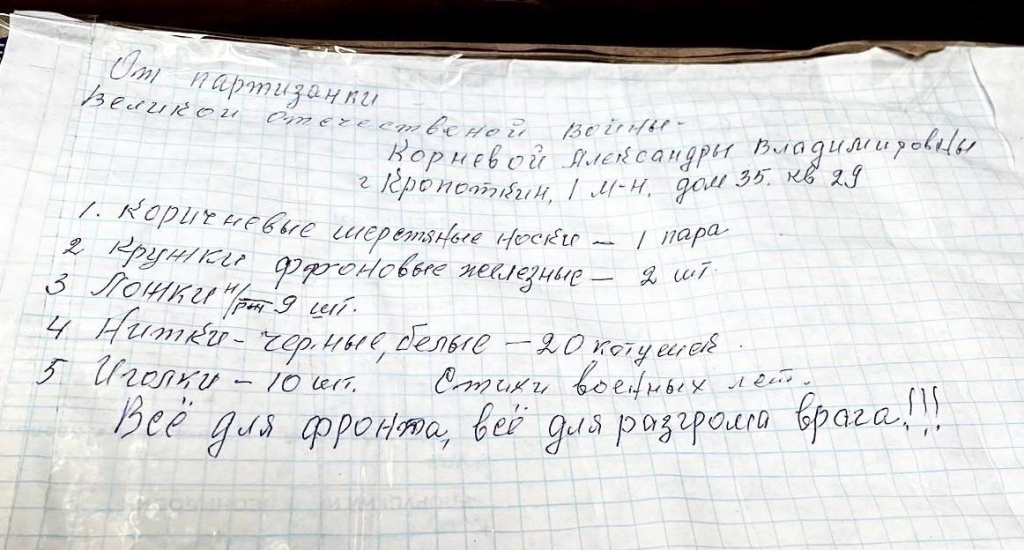 От партизанки
Великой отечественой войны-
Корневой Александры Владимировны
г Кропоткин, 1 м-н, дом 35. кв 29
1. Коричневые шерстяные носки – 1 пара
2 Кружки железные – 2 шт.
3 Ложки н/рж 9 шт.
4 Нитки – черные, белые – 20 котушек.
5 Иголки – 10 шт. Стихи военных лет.
Всё для фронта, всё для разгрома врага!!!